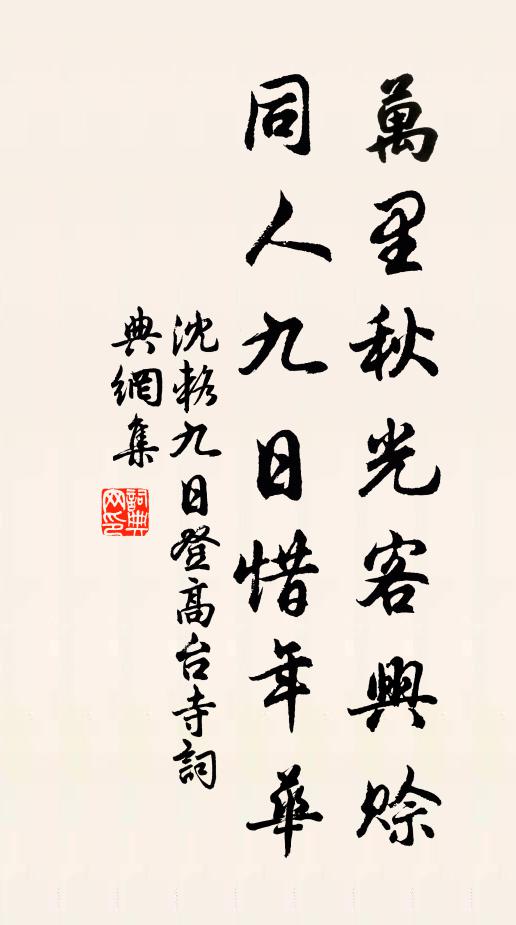 萬里秋光客興賒
同人九日惜年華
沈九日登高台寺詞
典網集
詞典
网印